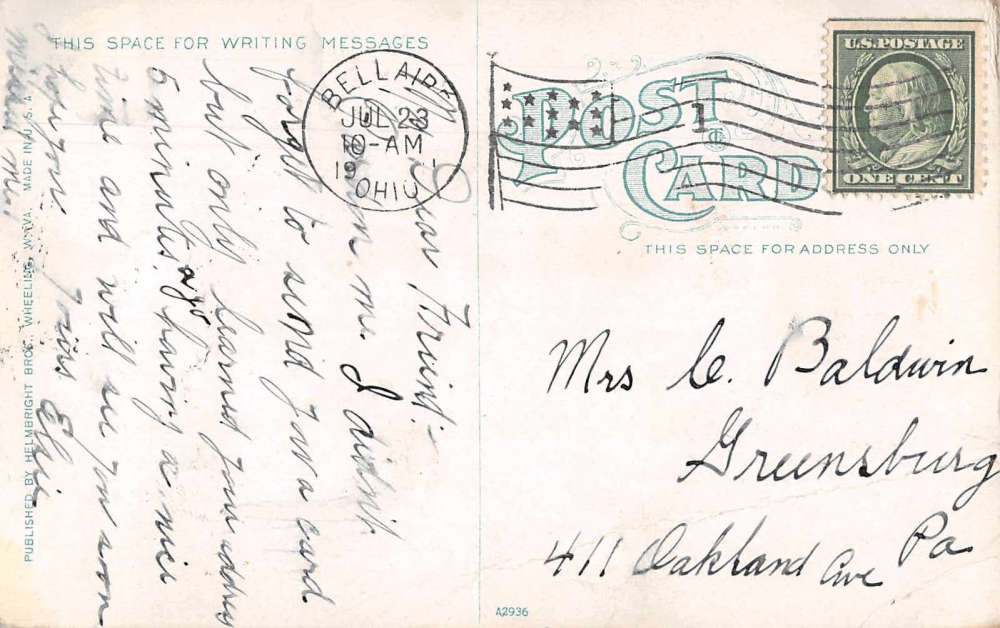 THIS SPACE FOR WRITING MESSAGES
Dear Friend:-
me. I didnt
forget to send you a card
but only learned your address
5 minutes ago, having a nice
time and will see you soon
hope you
mind me.
Yours Elsie
PUBLISHED BY HELMBRIGHT BROS., WHEELING, W. VA. MADE IN U. S. A.
BELLAIRE
JUL 23
10-AM
19
OHIO
POST CARD
1
U.S. POSTAGE
ONE CENT
THIS SPACE FOR ADDRESS ONLY
Mrs C. Baldwin
Greensburg
Pa
411 Oakland Ave
A2936